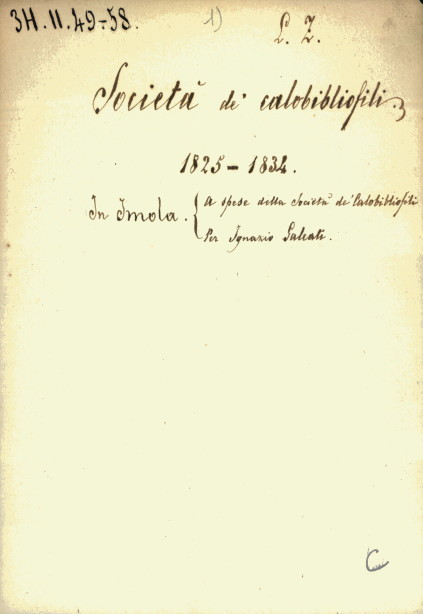 3H.11.49-58.
1)
L. Z.
Società de' calobibliofili.
1825 – 1834.
In Imola. { A spese della Società de' Calobibliofili
Per Ignazio Galeati.
C